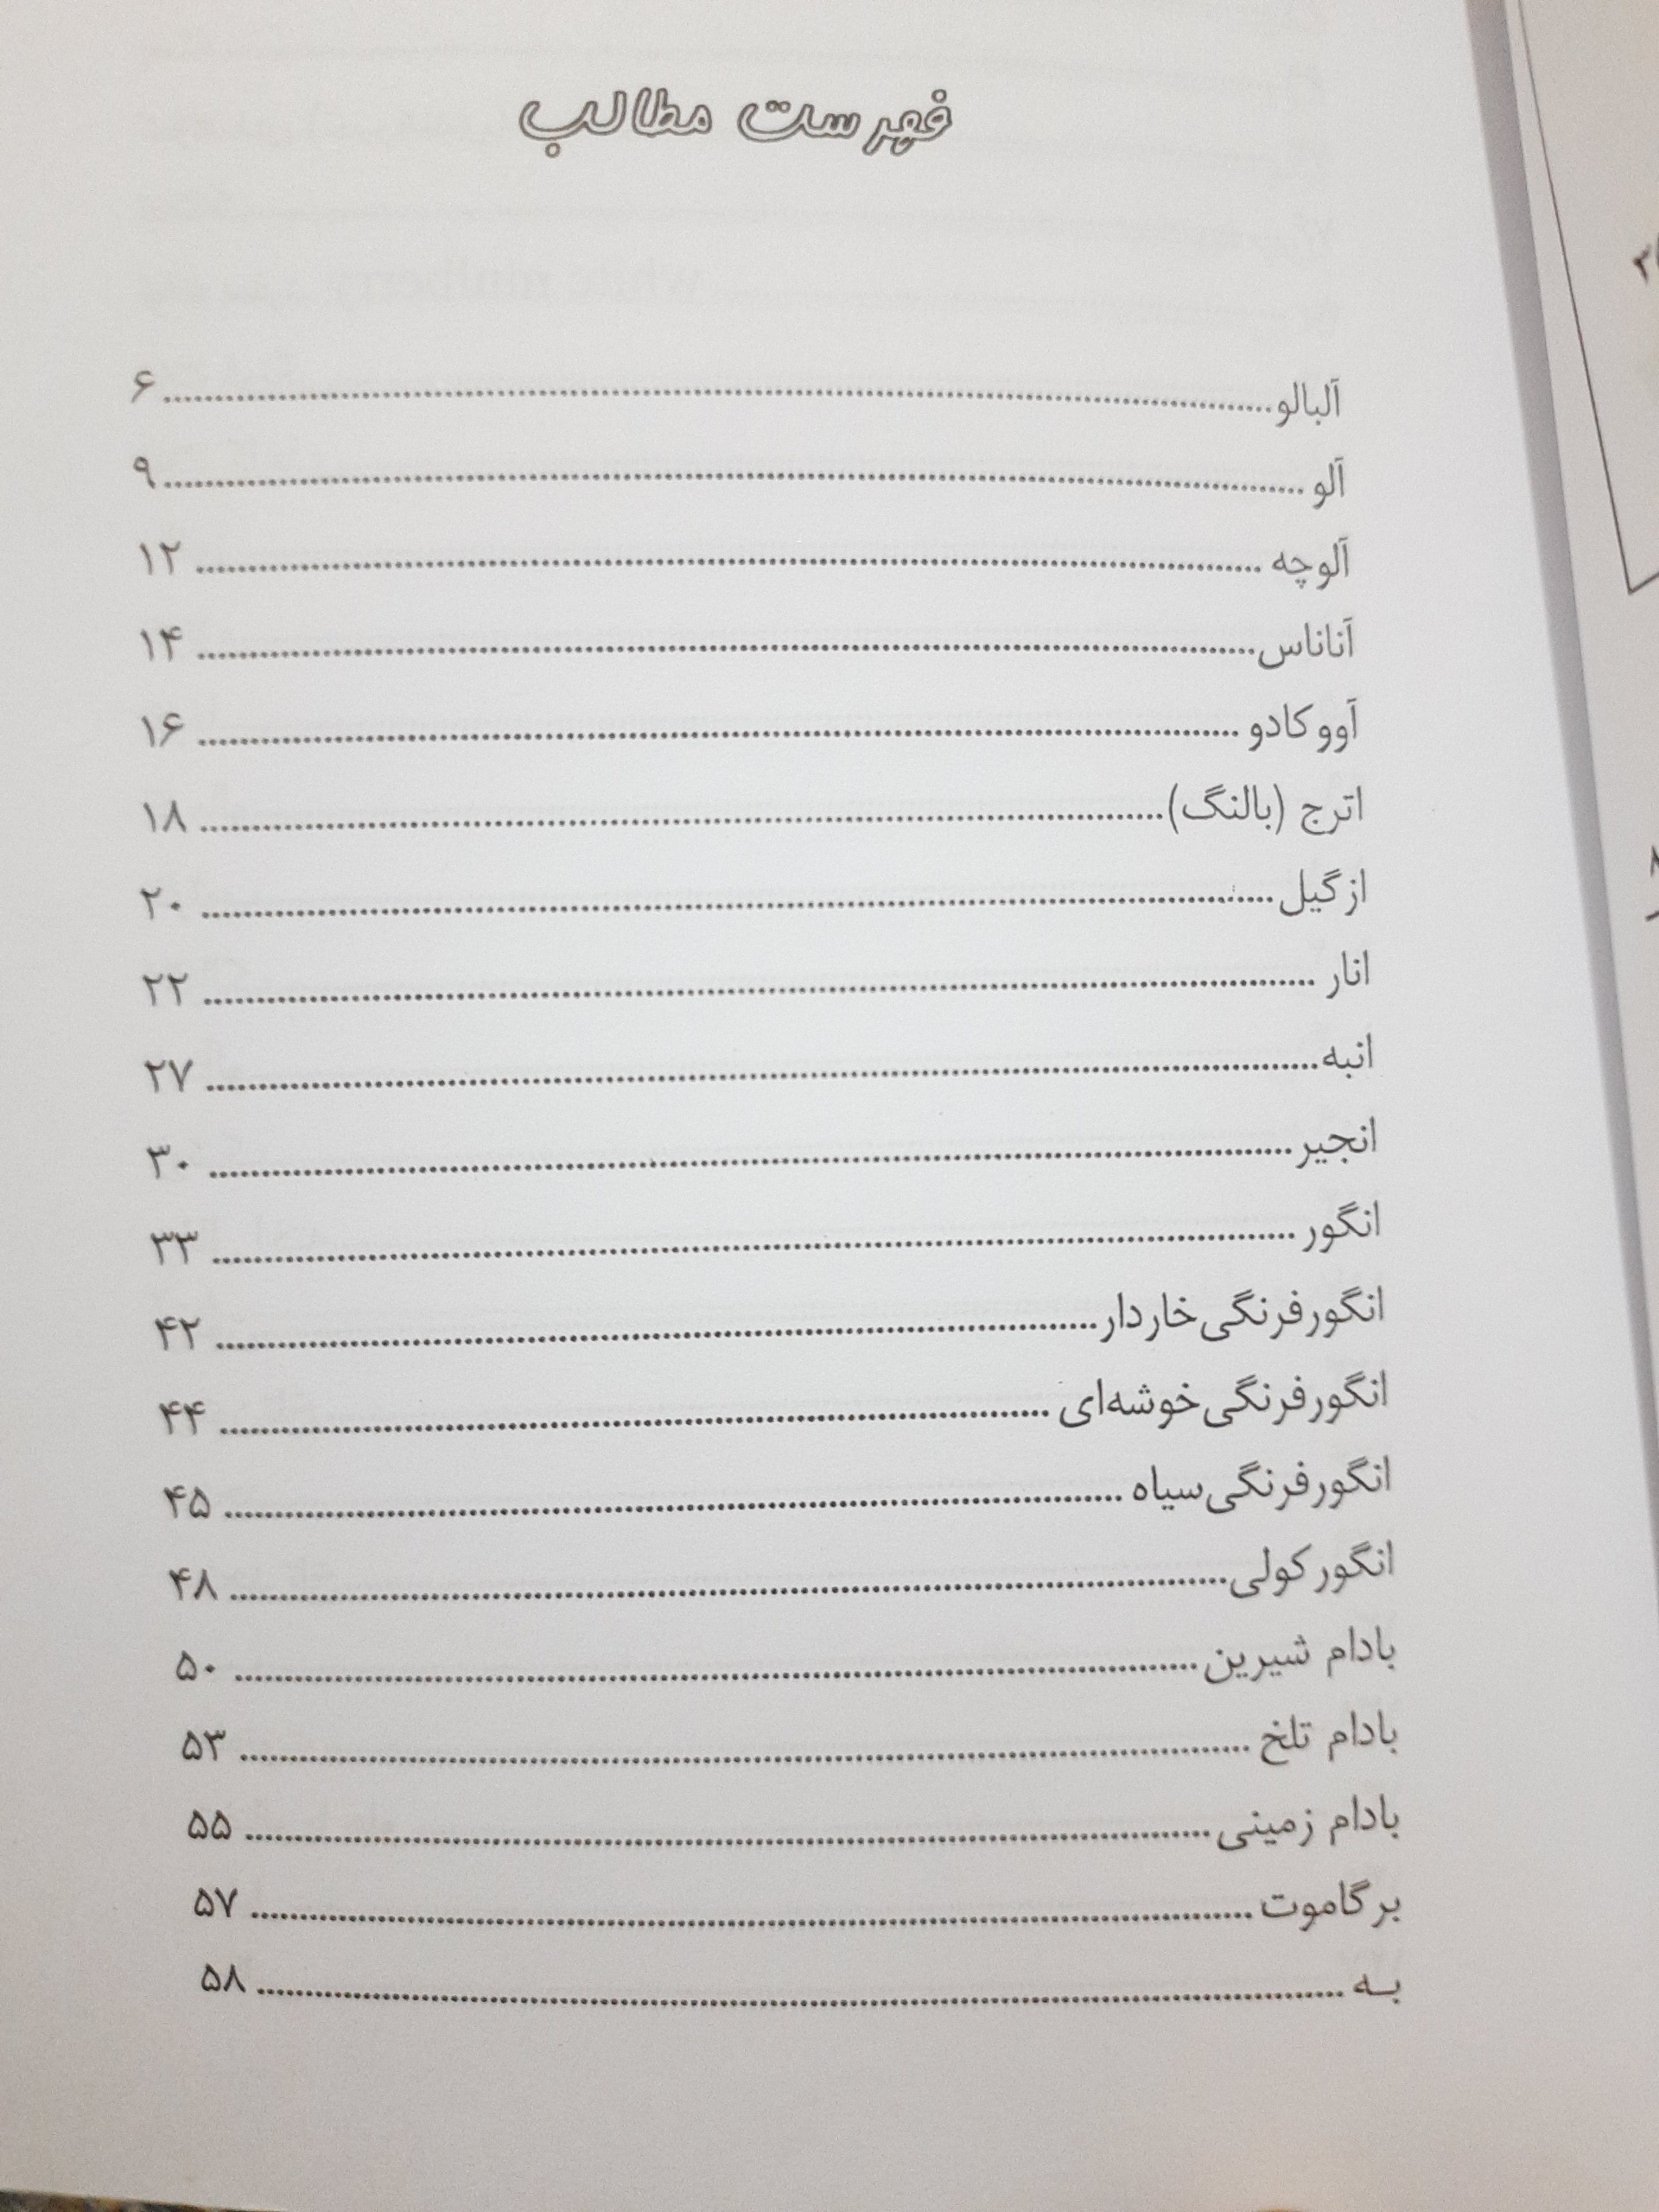 فهرست مطالب
آلبالو ........ ۶
آلو ........ ۹
آلوچه ........ ۱۲
آناناس ........ ۱۴
آووکادو ........ ۱۶
اترج (بالنگ) ........ ۱۸
ازگیل ........ ۲۰
انار ........ ۲۲
انبه ........ ۲۷
انجیر ........ ۳۰
انگور ........ ۳۳
انگورفرنگی‌خاردار ........ ۴۲
انگورفرنگی‌خوشه‌ای ........ ۴۴
انگورفرنگی‌سیاه ........ ۴۵
انگورکولی ........ ۴۸
بادام شیرین ........ ۵۰
بادام تلخ ........ ۵۳
بادام زمینی ........ ۵۵
برگاموت ........ ۵۷
به ........ ۵۸